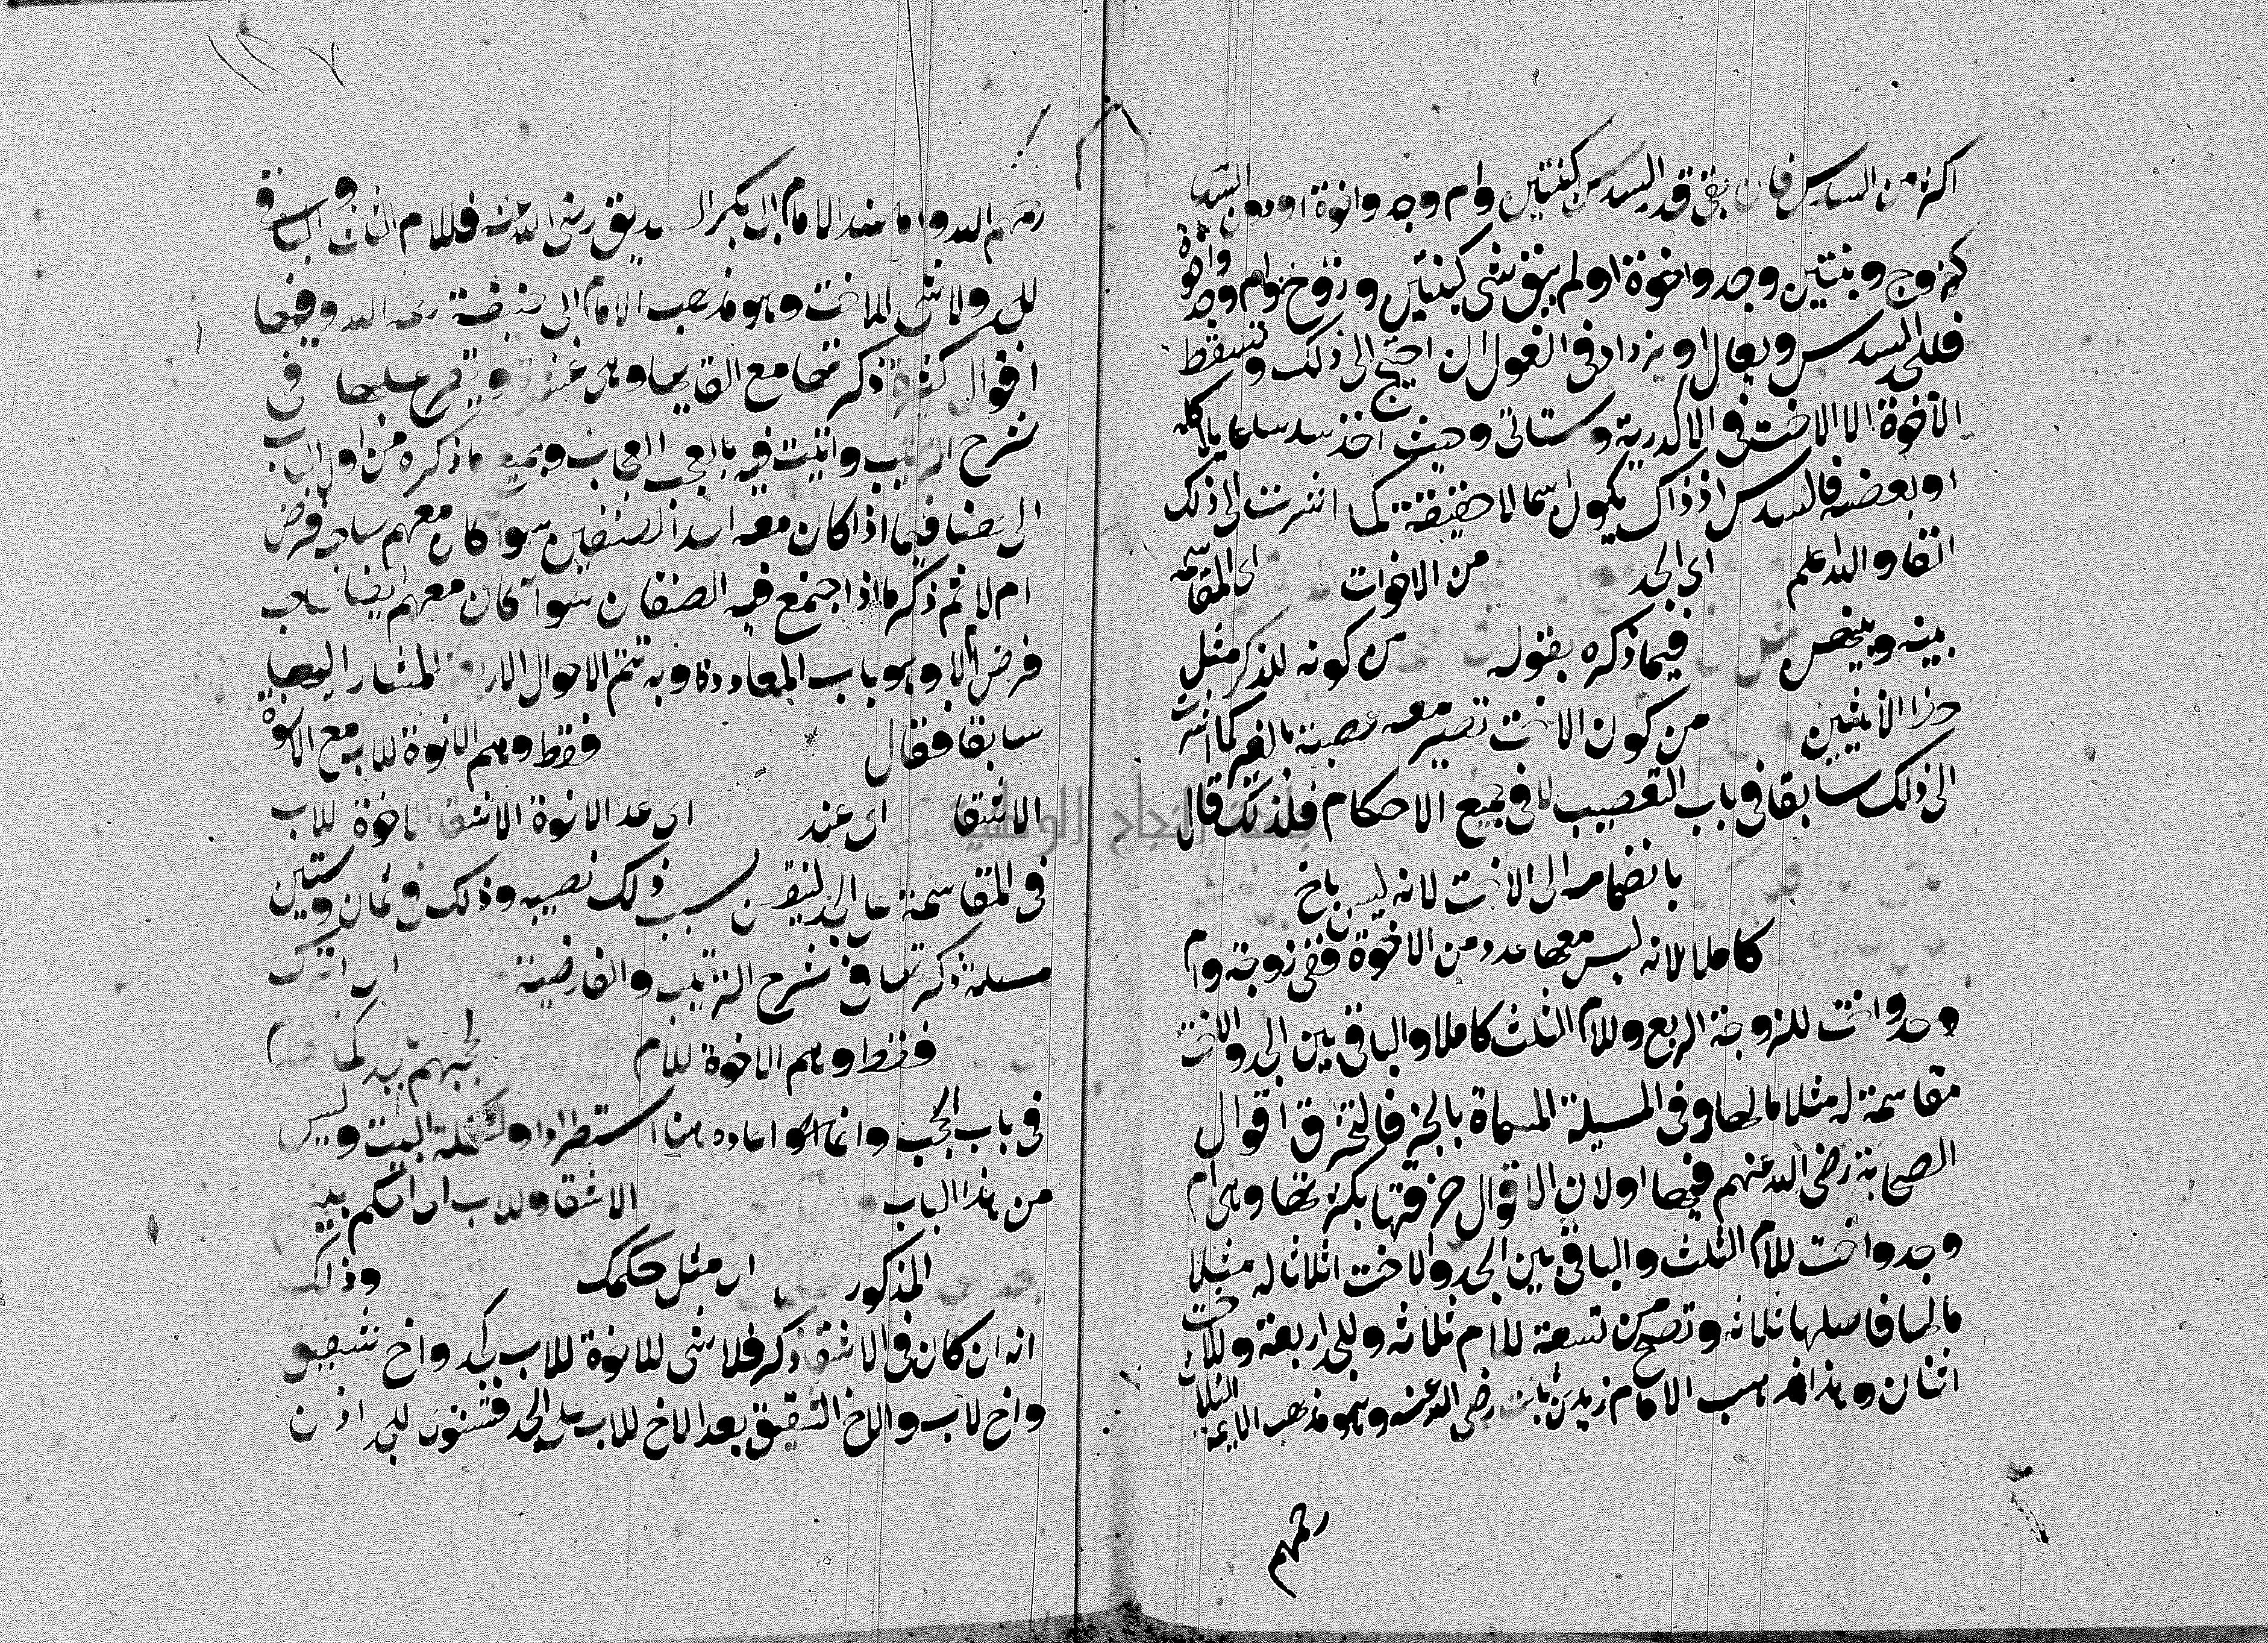 اكثر من السدس فان بقي قدر السدس كبنتين وام وجد واخوة او دون السدس
كزوج وبنتين وجد واخوة او لم يبق شي كبنتين وزوج وام وجد واخوة
فللجد السدس ويعال او يزاد في العول ان احتيج الى ذلك وتسقط
الاخوة الا الاخت في الاكدرية وستاتي وحيث اخذ سدسا عايلا كله
او بعضه فالسدس اذ ذاك يكون اسما لا حقيقة كما اشرت الى ذلك
انفا والله اعلم اي الجد من الاخوات اي المقاسمة
بينه وبينهن فيما ذكره بقوله من كونه للذكر مثل
حظ الانثيين من كون الاخت تصير معه عصبة بالغير كما اشرت
الى ذلك سابقا في باب التعصيب لا في جميع الاحكام فلذلك قال
بانضمامه الى الاخت لانه ليس باخ
كاملا لانه ليس معها عدد من الاخوة ففي زوجة وام
وجد واخت للزوجة الربع وللام الثلث كاملا والباقي بين الجد والاخت
مقاسمة له مثلا مالها وفي المسيلة المسماة بالخرقا لتخرق اقوال
الصحابة رضي الله عنهم فيها او لان الاقوال خرقتها بكثرتها وهي ام
وجد واخت للام الثلث والباقي بين الجد والاخت اثلاثا له مثلا
مالها فاصلها ثلاثه وتصح من تسعة للام ثلاثه وللجد اربعة وللاخت
اثنان وهذا مذهب الامام زيد بن ثابت رضي الله عنه وهو مذهب الايمة الثلاث
رحمهم
رحمهم الله واما عند الامام ابي بكر الصديق رضي الله عنه فللام الثلث والباقي
للجد ولا شي للاخت وهو مذهب الامام ابي حنيفة رحمه الله وفيها
اقوال كثيرة ذكرتها مع القابها وهي عشرة ويتفرع عليها في
شرح الترتيب واتيت فيه بالعجب العجاب وجميع ما ذكره من اول الباب
الى هنا فيما اذا كان معه احد الصنفين سوا كان معهم صاحب فرض
ام لا ثم ذكر ما اذا اجتمع فيه الصنفان سوآ كان معهم ايضا صاحب
فرض ام لا وهو باب المعاددة وبه تتم الاحوال الاربعة المشار اليها
سابقا فقال فقط وهم الاخوة للاب مع الاخوة
الاشقا اي عند اي عد الاخوة الاشقا الاخوة للاب
في المقاسمة على الجد لينقص بسبب ذلك نصيبه وذلك في ثمان وستين
مسئلة ذكرتها في شرح الترتيب والفارضية اي اترك
فقط وهم الاخوة للام لحجبهم بالجد كما قدم
في باب الحجب وانما اعاده هنا استطرادا وتكملة البيت وليس
من هذا الباب الاشقا وللاب اي احكم بينهم
المذكور اي مثل حكمك وذلك
انه ان كان في الاشقا ذكر فلا شي للاخوة للاب كجد واخ شقيق
واخ لاب والاخ الشقيق يعد الاخ للاب على الجد فتستوي للجد اذن